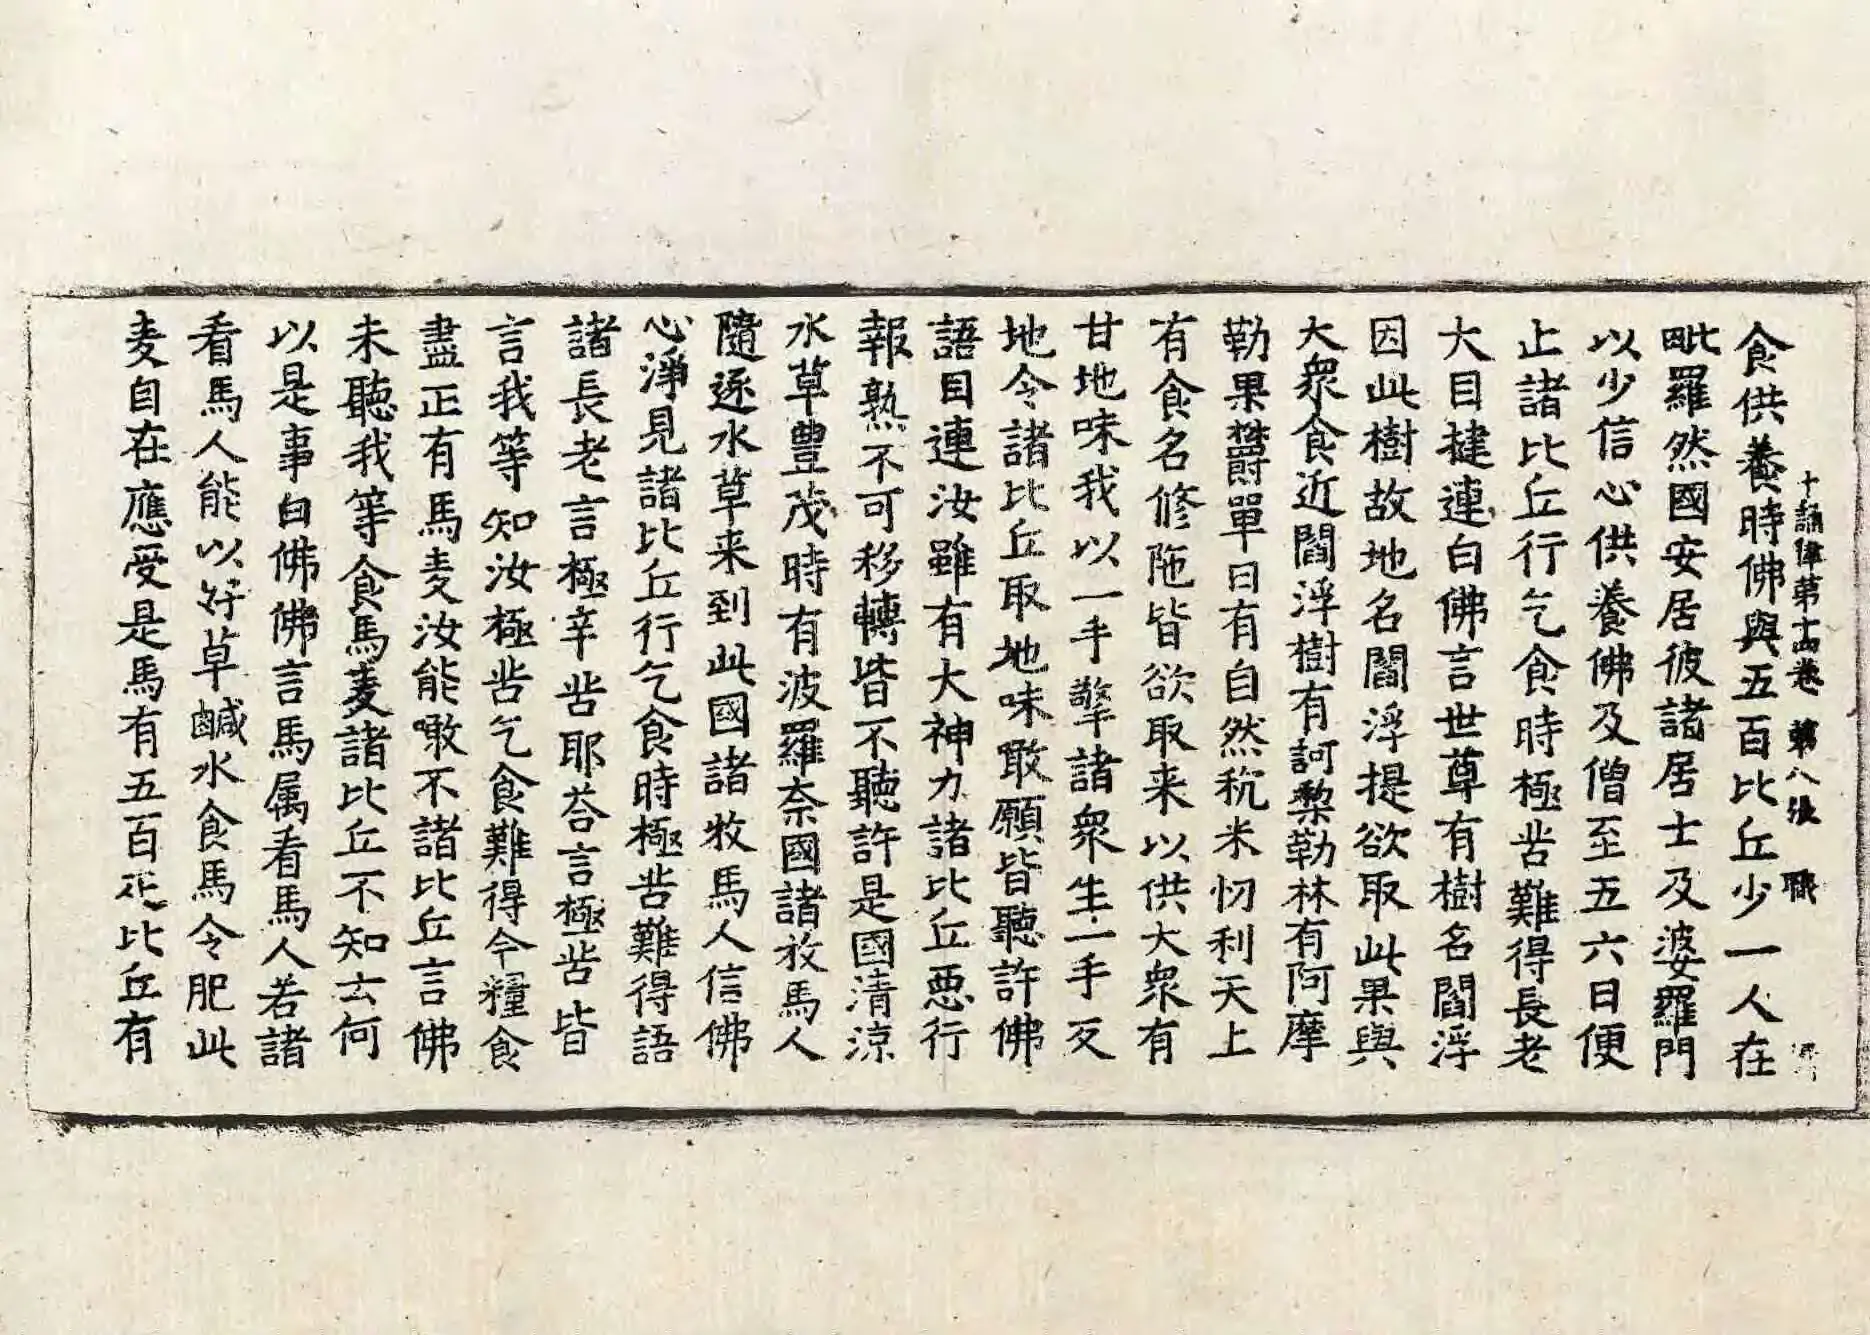 十誦律第十四卷 第八張 職
食供養時佛與五百比丘少一人在
毗羅然國安居彼諸居士及婆羅門
以少信心供養佛及僧至五六日便
止諸比丘行乞食時極苦難得長老
大目揵連白佛言世尊有樹名閻浮
因此樹故地名閻浮提欲取此果與
大衆食近閻浮樹有訶梨勒林有阿摩
勒果欝單曰有自然秔米忉利天上
有食名修陁皆欲取来以供大衆有
甘地味我以一手擎諸衆生一手反
地令諸比丘取地味噉願皆聽許佛
語目連汝雖有大神力諸比丘惡行
報熟不可移轉皆不聽許是國清涼
水草豊茂時有波羅奈國諸放馬人
隨逐水草来到此國諸牧馬人信佛
心淨見諸比丘行乞食時極苦難得語
諸長老言極辛苦耶荅言極苦皆
言我等知汝極苦乞食難得今糧食
盡正有馬麦汝能噉不諸比丘言佛
未聽我等食馬麦諸比丘不知云何
以是事白佛佛言馬属看馬人若諸
看馬人能以好草鹹水食馬令肥此
麦自在應受是馬有五百疋比丘有